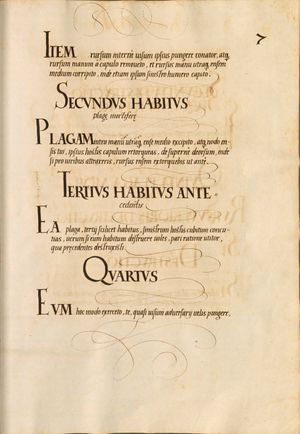 7
ITEM rursum interne uisum ipsius pungere conator, atq,
rursum manum à capulo remoueto, et rursus manu utraq, ensem
medium corripito, inde etiam ipsum sinistro humero capito.
SECVNDVS HABITVS
plagę mortiferę
PLAGAM intra manu utraq, ense medio excipito, atq, nodo en-
sis tui, ipsius hostis capulum retorqueas, de supernè deorsum, inde
si pro uiribus attraxeris, rursus ensem extorquebis ut ante.
TERTIVS HABITVS ANTE
cedentis
EA plaga, tertij scilicet habitus, sinistrum hostis cubitum concu-
tias, uerum si eum habitum destruere uelis, pari ratione utitor,
qua precedentes destruxisti.
QVARTVS
EVM hoc modo exerceto, te, quasi uisum aduersarij uelis pungere,